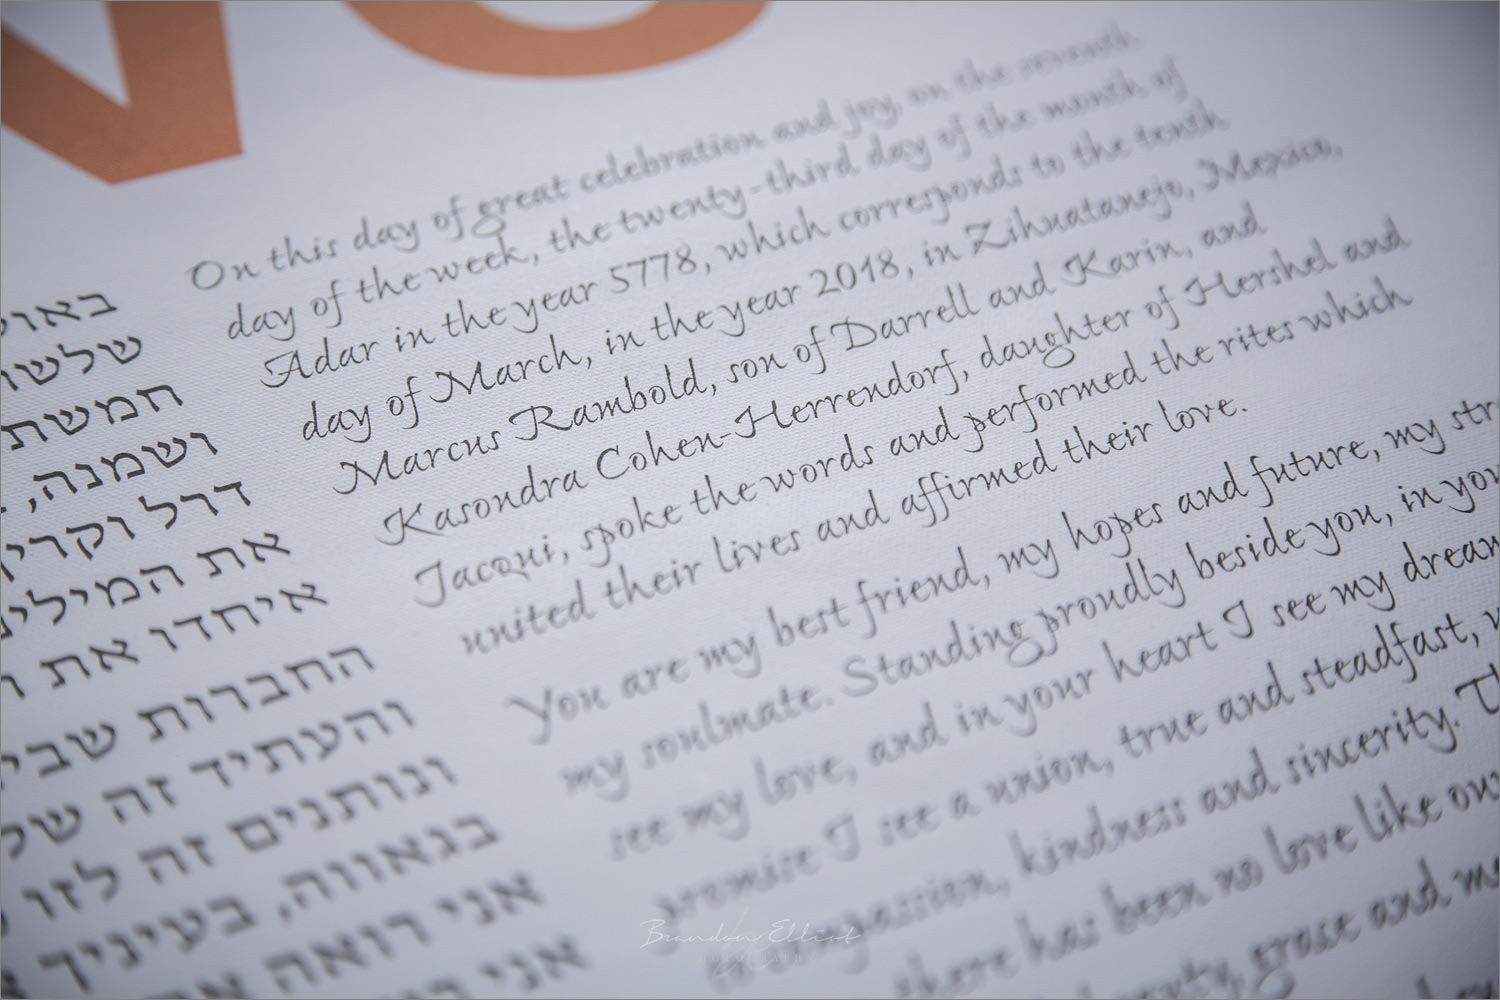 VO
On this day of great celebration and joy, on the seventh
day of the week, the twenty-third day of the month of
Adar in the year 5778, which corresponds to the tenth
day of March, in the year 2018, in Zihuatanejo, Mexico,
Marcus Rambold, son of Darrell and Karin, and
Kasondra Cohen-Herrendorf, daughter of Hershel and
Jacqui, spoke the words and performed the rites which
united their lives and affirmed their love.
You are my best friend, my hopes and future, my
my soulmate. Standing proudly beside you, in
see my love, and in your heart I see my
promise I see a union, true and steadfast,
compassion, kindness and sincerity.
there has been no love like
grace and
שלשו
חמשת
ושמנה,
דרל וקרין
את המילים
איחדו את
החברות
והעתיד זה
ונותנים זה לזו
בגאווה, בעיניך
אני רואה
אני
Brandon Elliot